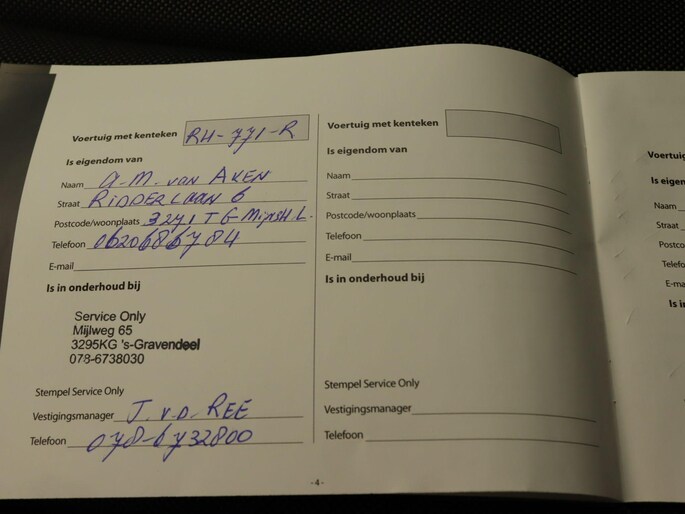 Voertuig met kenteken RH-771-R
Is eigendom van
Naam a.m. van Aken
Straat RIDDERLAAN 6
Postcode/woonplaats 3271 TG MIJNSH.L.
Telefoon 0620686784
E-mail
Is in onderhoud bij
Service Only
Mijlweg 65
3295KG 's-Gravendeel
078-6738030
Stempel Service Only
Vestigingsmanager J. v.d. REE
Telefoon 078-6732800
Voertuig met kenteken
Is eigendom van
Naam
Straat
Postcode/woonplaats
Telefoon
E-mail
Is in onderhoud bij
Stempel Service Only
Vestigingsmanager
Telefoon
-4-
Voertuig
Is eigen
Naam
Straat
Postco
Telefo
E-ma
Is i